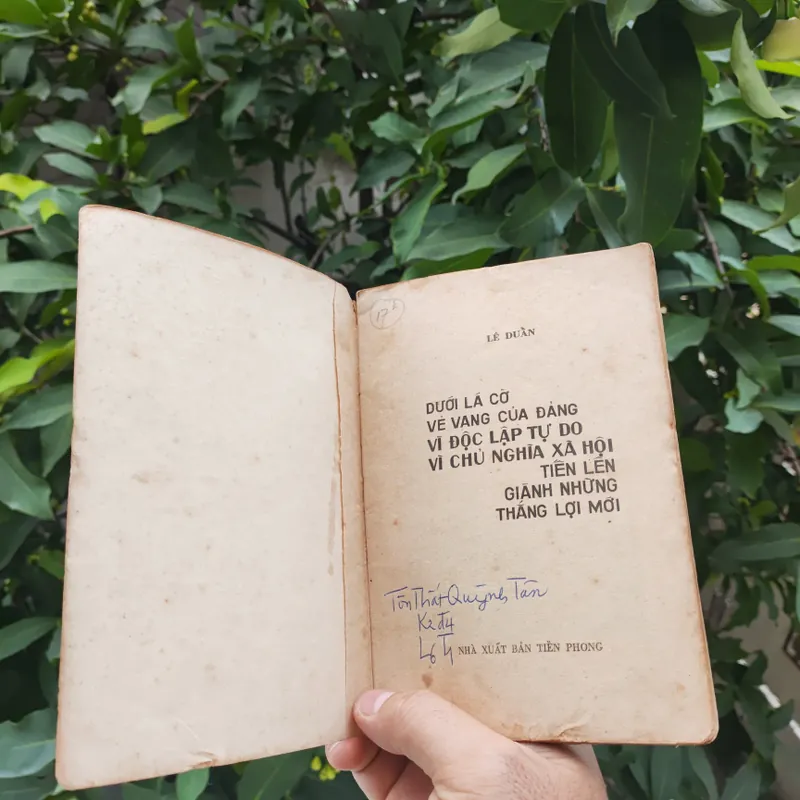 LÊ DUẨN
DƯỚI LÁ CỜ
VẺ VANG CỦA ĐẢNG
VÌ ĐỘC LẬP TỰ DO
VÌ CHỦ NGHĨA XÃ HỘI
TIẾN LÊN
GIÀNH NHỮNG
THẮNG LỢI MỚI
Tôn Thất Quỳnh Tân
K2đ4
NHÀ XUẤT BẢN TIỀN PHONG